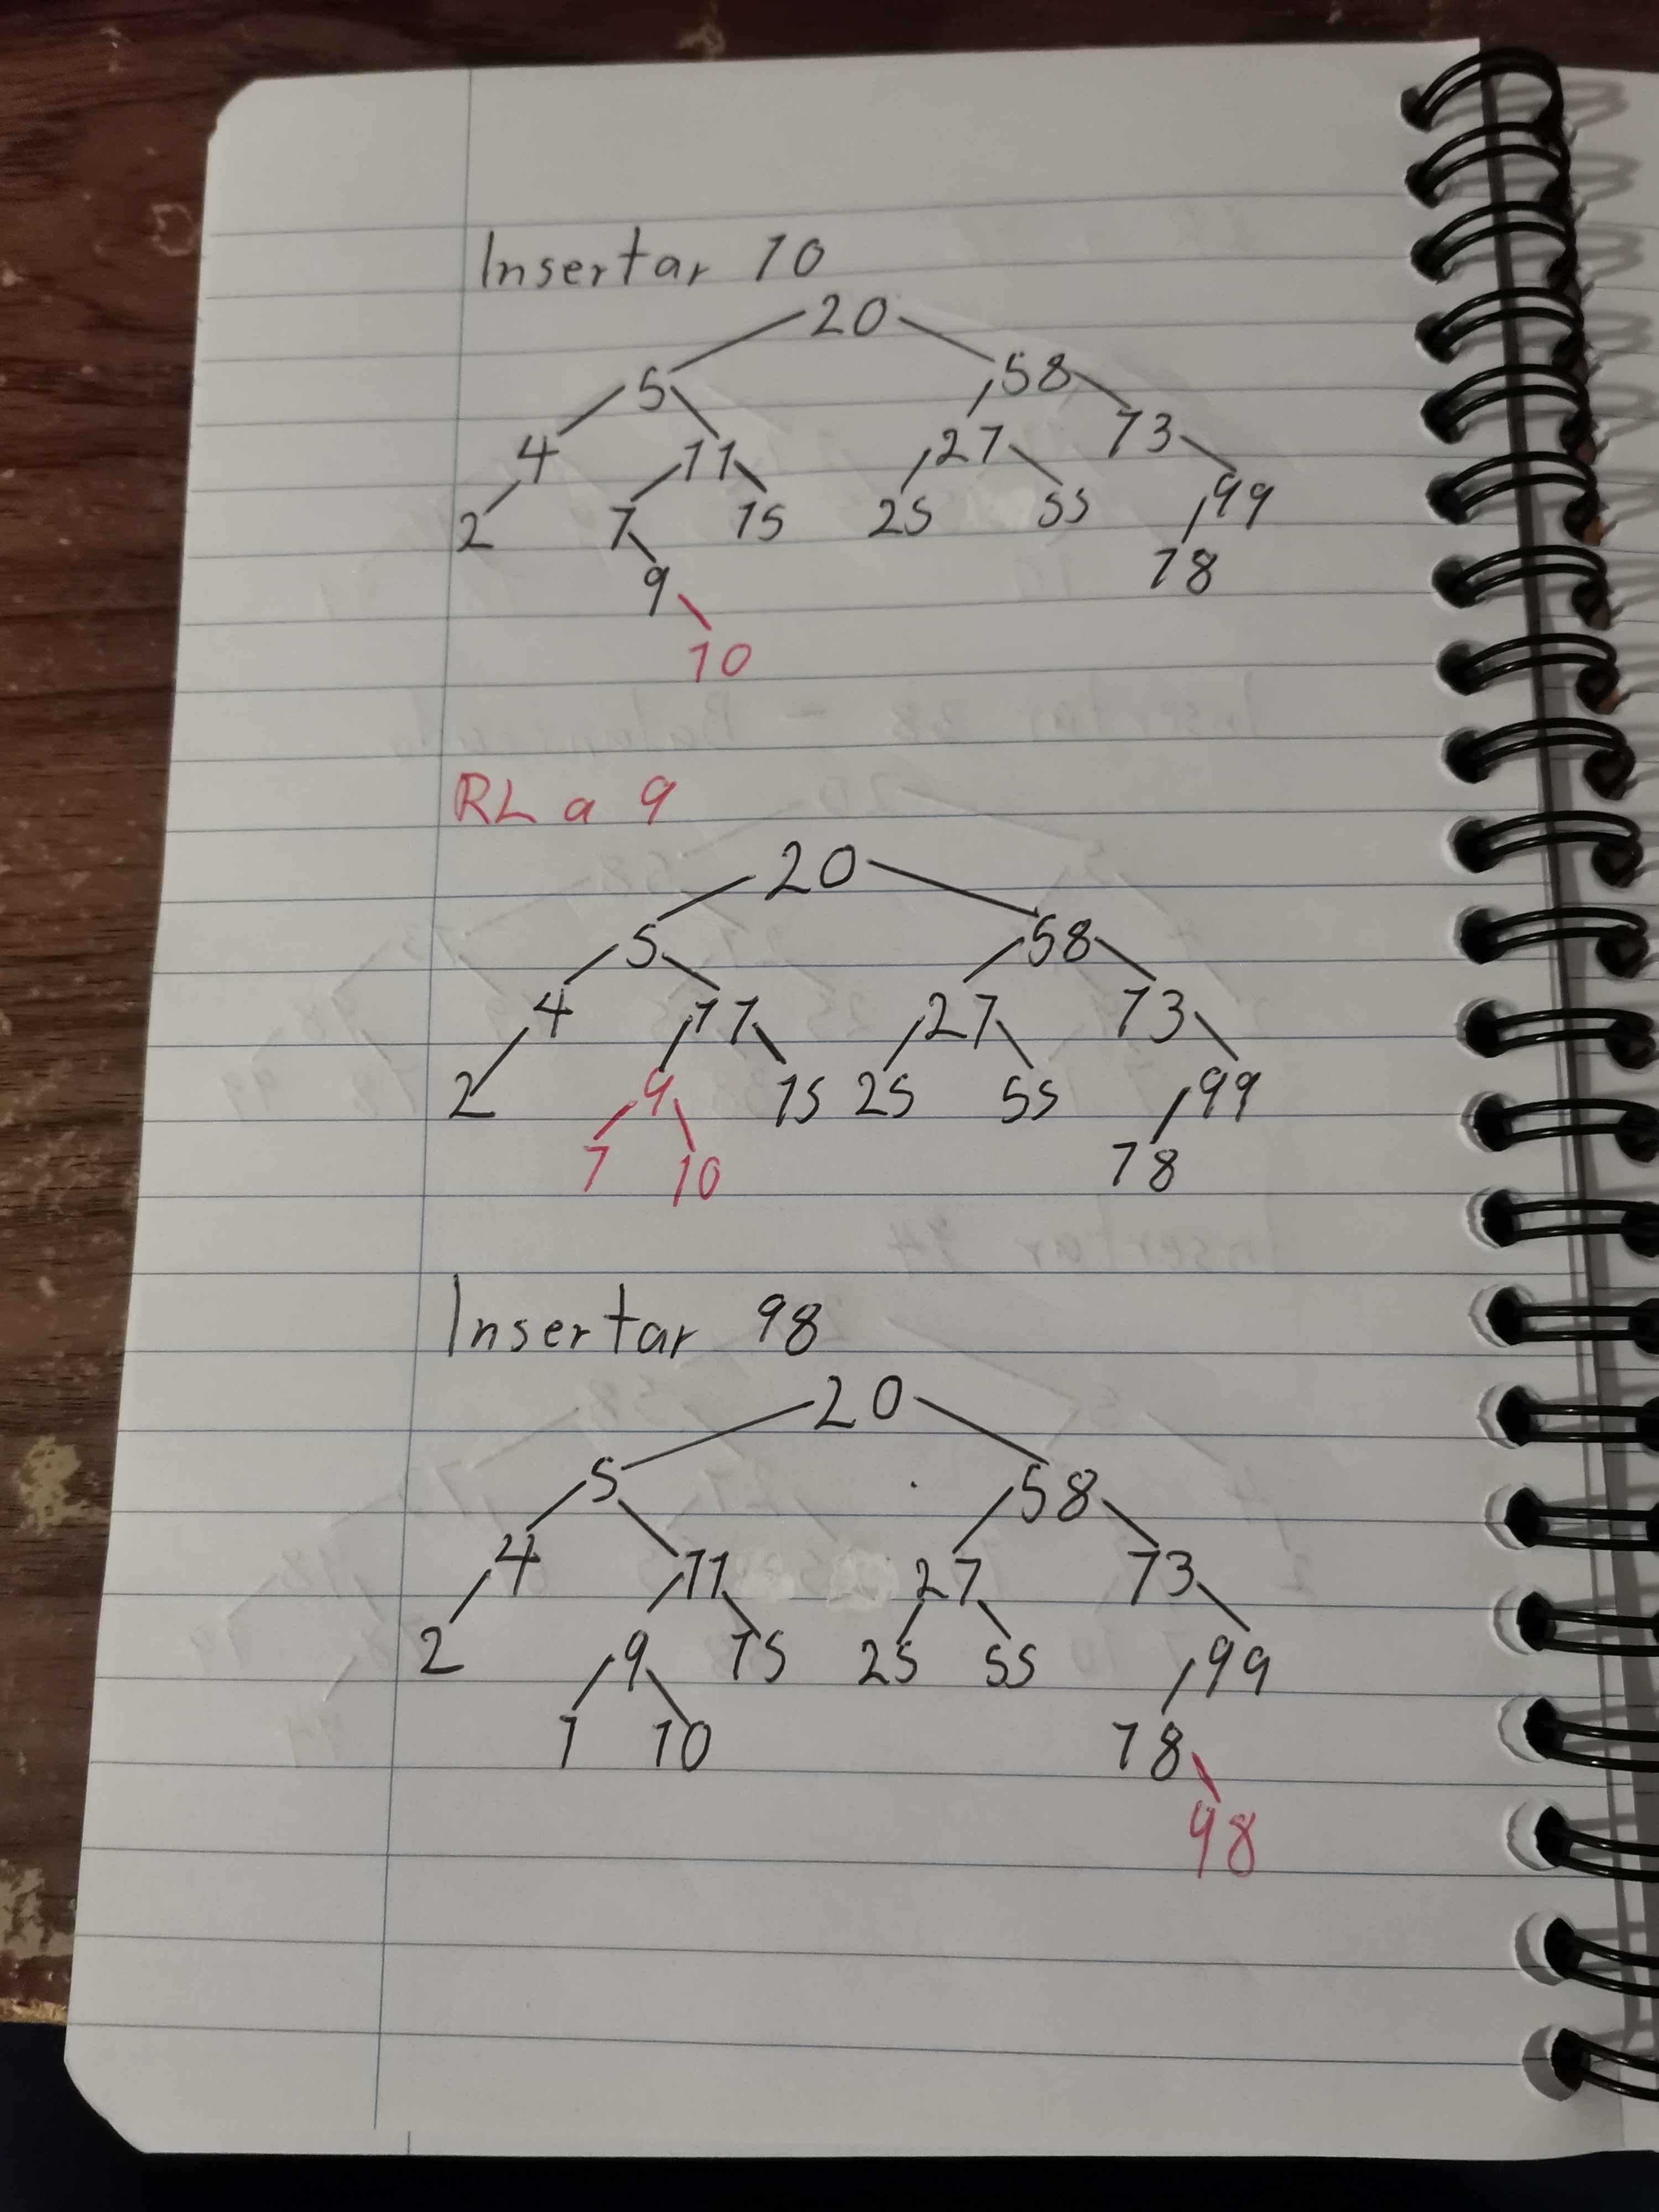 Insertar 10
20
5 58
4 11 27 73
2 7 15 25 55 99
9 78
10
RL a 9
20
5 58
4 11 27 73
2 9 15 25 55 99
7 10 78
Insertar 98
20
5 58
4 11 27 73
2 9 15 25 55 99
7 10 78
98